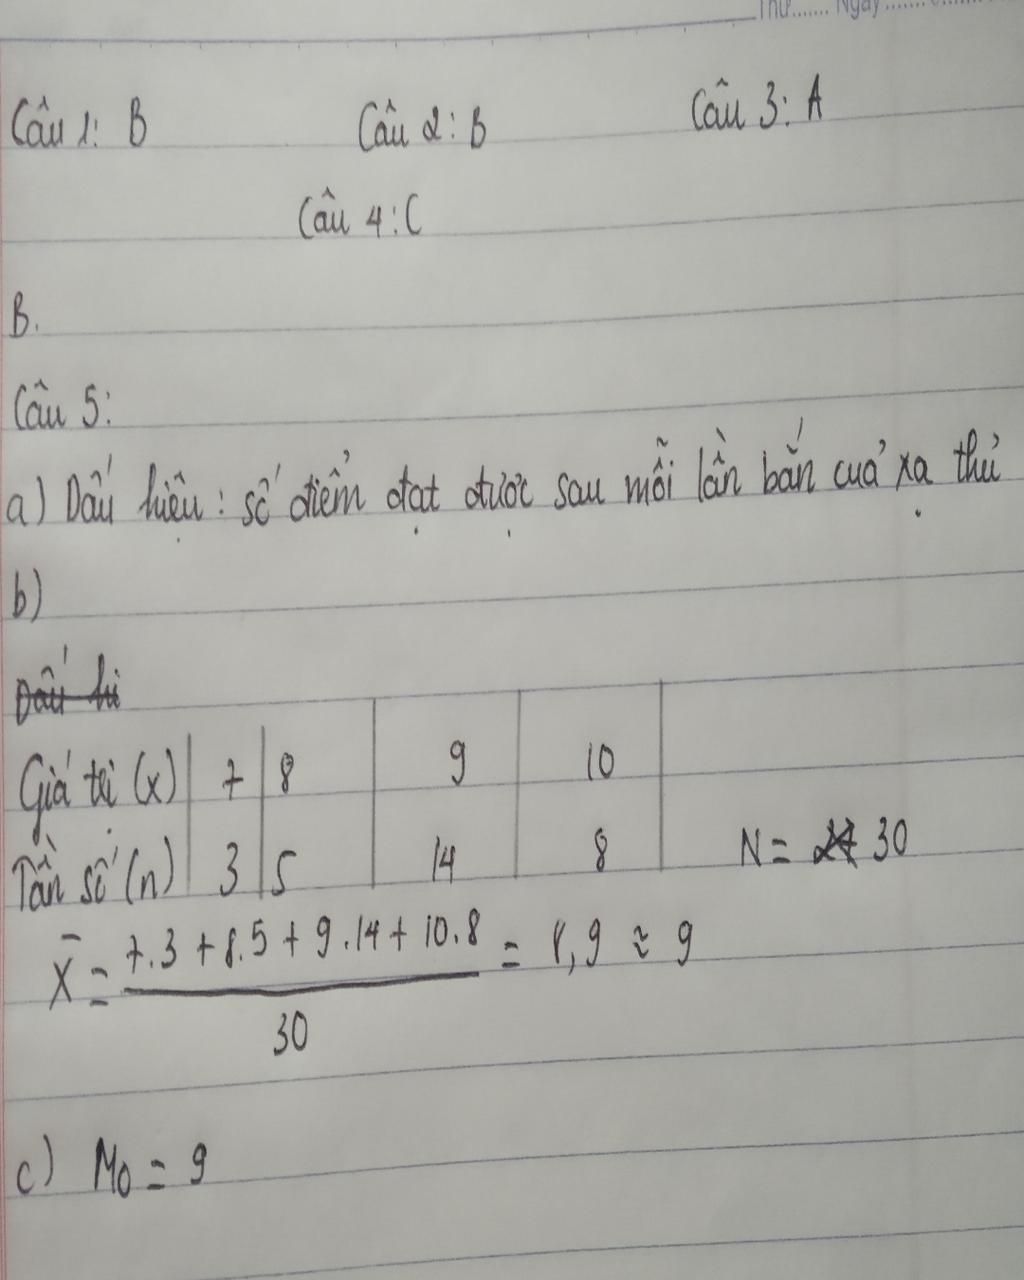 Thứ....... Ngày.......
Câu 1: B Câu 2: B Câu 3: A
Câu 4: C
B.
Câu 5:
a) Dấu hiệu: số điểm đạt được sau mỗi lần bắn cuả xạ thủ
b)
Dấu hi
Giá trị (x) 7 8 9 10
Tần số (n) 3 5 14 8 N = 27 30
X̄ = 7.3 + 8.5 + 9.14 + 10.8 = 8,9 ≈ 9
30
c) M₀ = 9